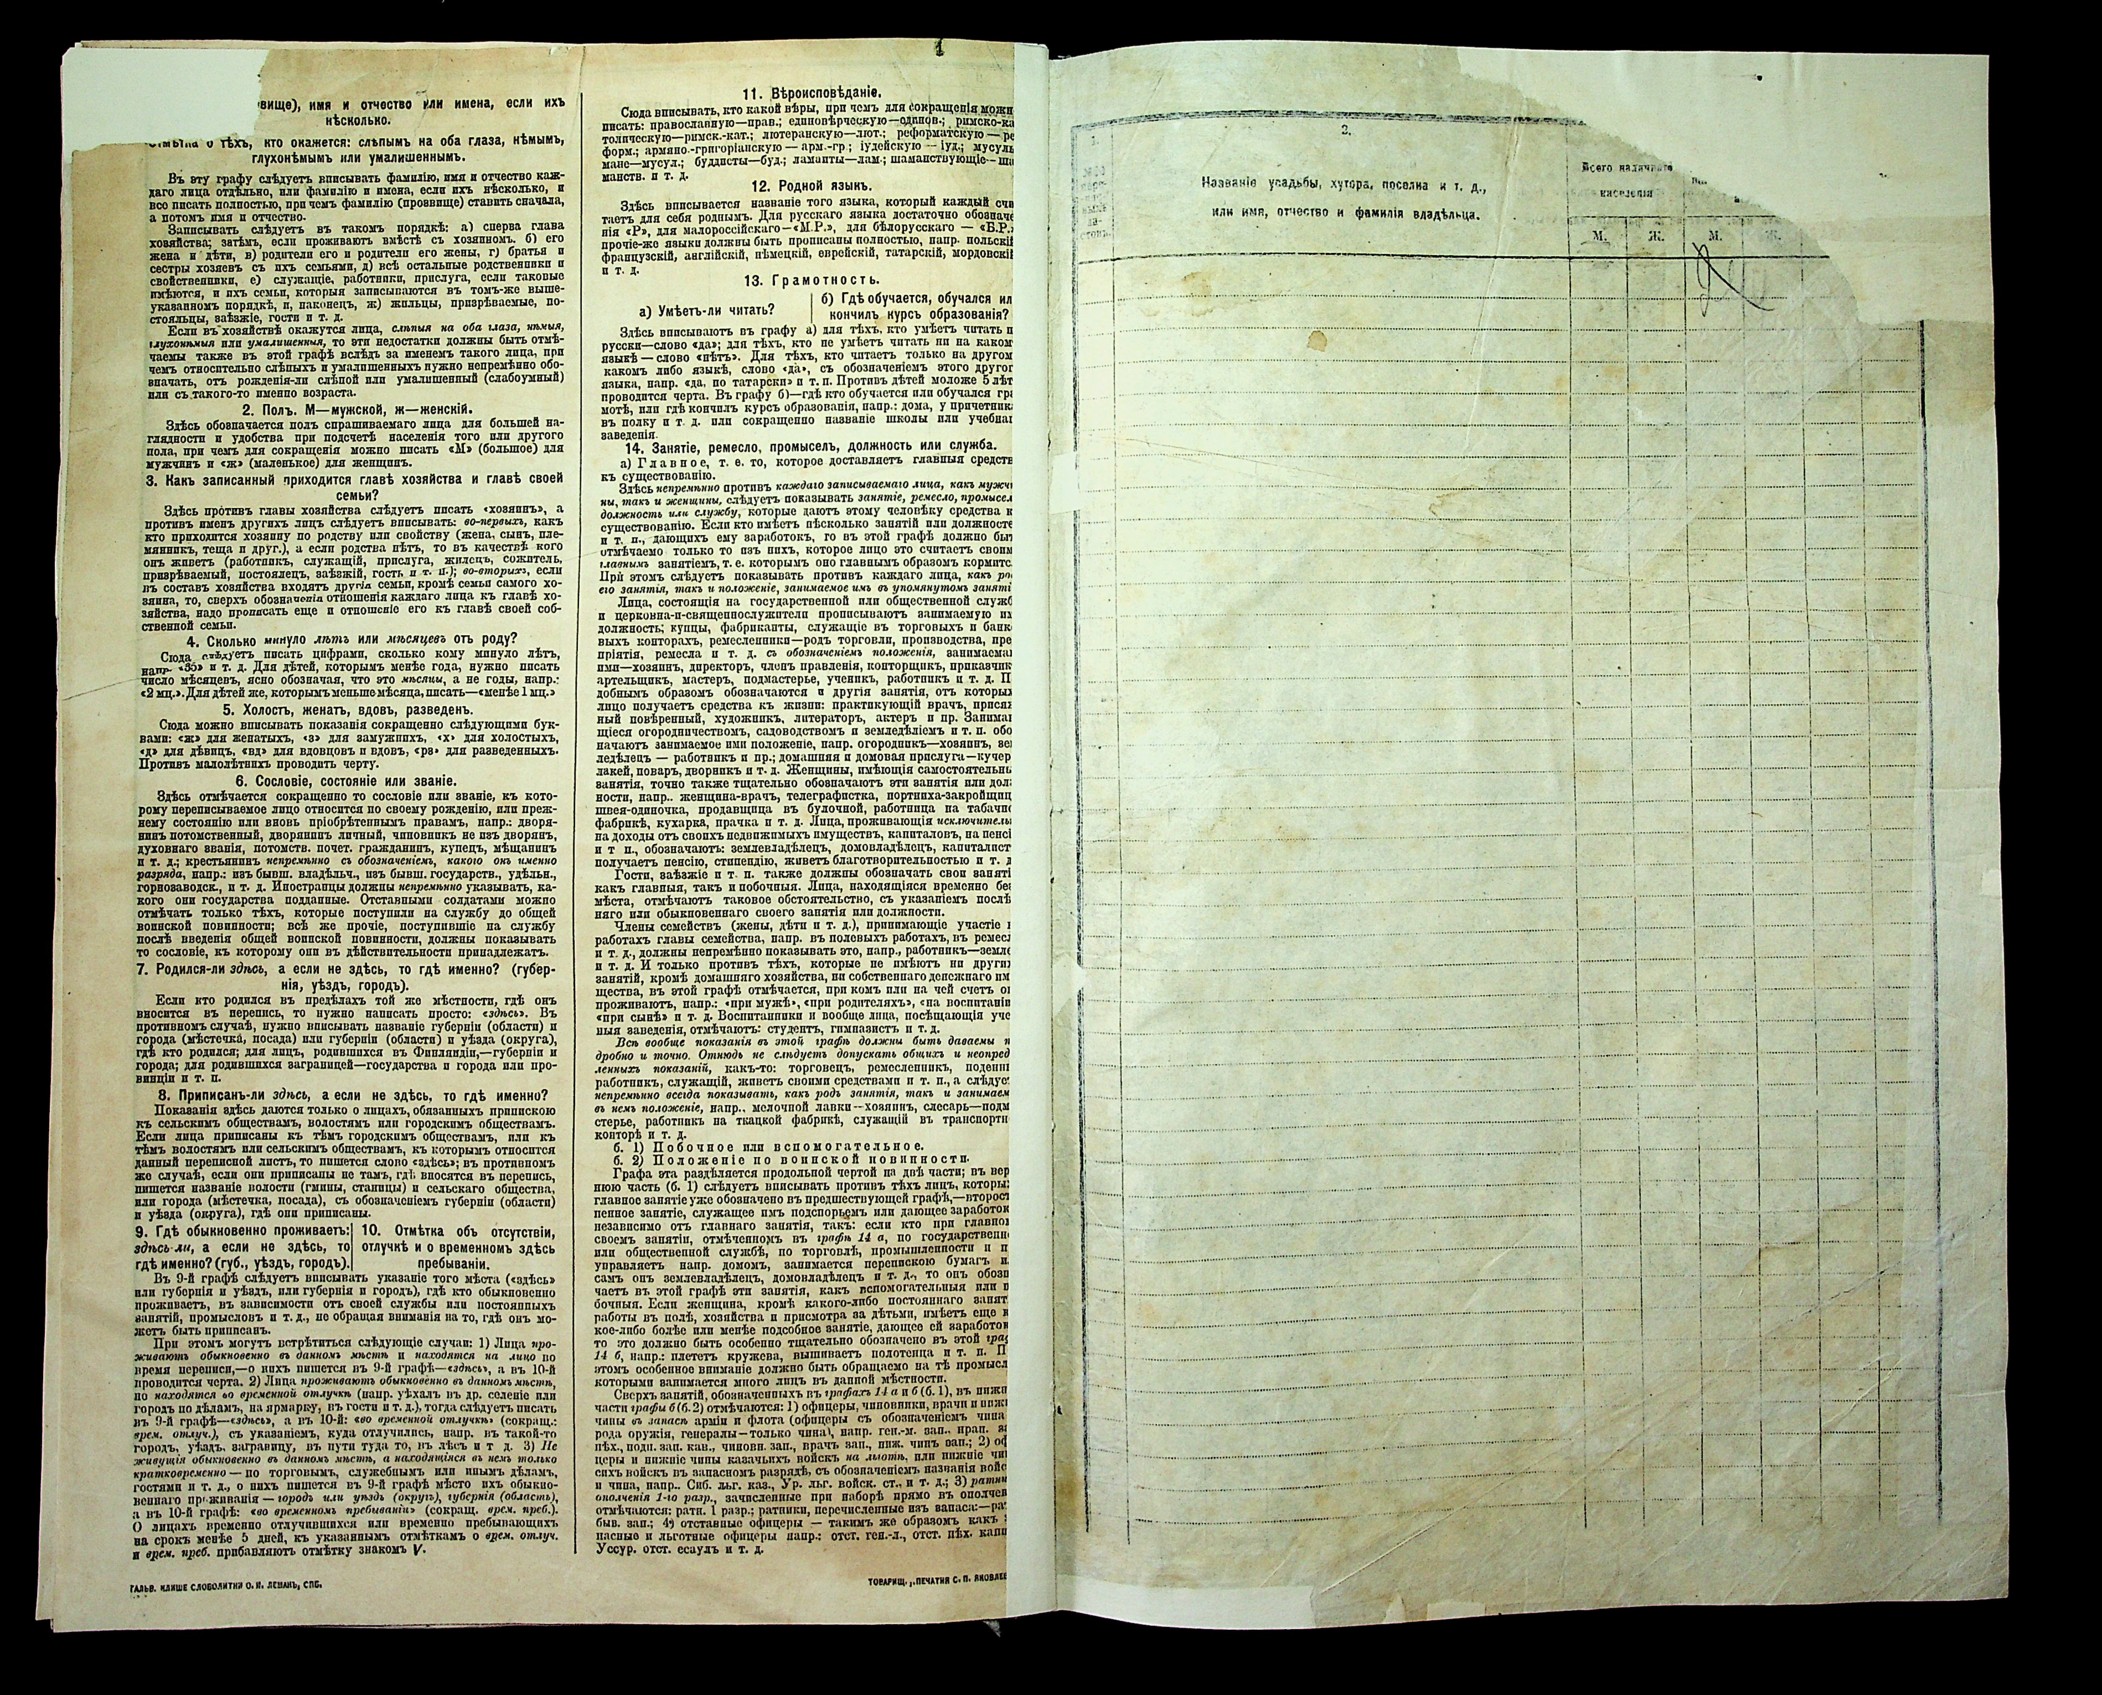 вище), имя и отчество или имена, если ихъ
нѣсколько.
о тѣхъ, кто окажется: слѣпымъ на оба глаза, нѣмымъ,
глухонѣмымъ или умалишеннымъ.
Въ эту графу слѣдуетъ вписывать фамилію, имя и отчество каж-
даго лица отдѣльно, или фамилію и имена, если ихъ нѣсколько, и
все писать полностью, при чемъ фамилію (прозвище) ставить сначала,
а потомъ имя и отчество.
Записывать слѣдуетъ въ такомъ порядкѣ: а) сперва глава
хозяйства; затѣмъ, если проживаютъ вмѣстѣ съ хозяиномъ. б) его
жена и дѣти, в) родители его и родители его жены, г) братья и
сестры хозяевъ съ ихъ семьями, д) всѣ остальные родственники и
свойственники, е) служащіе, работники, прислуга, если таковые
имѣются, и ихъ семьи, которыя записываются въ томъ-же выше-
указанномъ порядкѣ, и, наконецъ, ж) жильцы, призрѣваемые, по-
стояльцы, заѣзжіе, гости и т. д.
Если въ хозяйствѣ окажутся лица, слѣпыя на оба глаза, нѣмыя,
глухонѣмыя или умалишенныя, то эти недостатки должны быть отмѣ-
чаемы также въ этой графѣ вслѣдъ за именемъ такого лица, при
чемъ относительно слѣпыхъ и умалишенныхъ нужно непремѣнно обо-
значать, отъ рожденія-ли слѣпой или умалишенный (слабоумный)
или съ такого-то именно возраста.
2. Полъ. М—мужской, ж—женскій.
Здѣсь обозначается полъ спрашиваемаго лица для большей на-
глядности и удобства при подсчетѣ населенія того или другого
пола, при чемъ для сокращенія можно писать «М» (большое) для
мужчинъ и «ж» (маленькое) для женщинъ.
3. Какъ записанный приходится главѣ хозяйства и главѣ своей
семьи?
Здѣсь противъ главы хозяйства слѣдуетъ писать «хозяинъ», а
противъ именъ другихъ лицъ слѣдуетъ вписывать: во-первыхъ, какъ
кто приходится хозяину по родству или свойству (жена, сынъ, пле-
мянникъ, теща и друг.), а если родства нѣтъ, то въ качествѣ кого
онъ живетъ (работникъ, служащій, прислуга, жилецъ, сожитель,
призрѣваемый, постоялецъ, заѣзжій, гость и т. п.); во-вторыхъ, если
въ составъ хозяйства входятъ другія семьи, кромѣ семьи самого хо-
зяина, то, сверхъ обозначенія отношенія каждаго лица къ главѣ хо-
зяйства, надо прописать еще и отношеніе его къ главѣ своей соб-
ственной семьи.
4. Сколько минуло лѣтъ или мѣсяцевъ отъ роду?
Сюда слѣдуетъ писать цифрами, сколько кому минуло лѣтъ,
напр. «35» и т. д. Для дѣтей, которымъ менѣе года, нужно писать
число мѣсяцевъ, ясно обозначая, что это мѣсяцы, а не годы, напр.:
«2 мц.». Для дѣтей же, которымъ меньше мѣсяца, писать—«менѣе 1 мц.»
5. Холостъ, женатъ, вдовъ, разведенъ.
Сюда можно вписывать показанія сокращенно слѣдующими бук-
вами: «ж» для женатыхъ, «з» для замужнихъ, «х» для холостыхъ,
«д» для дѣвицъ, «вд» для вдовцовъ и вдовъ, «рз» для разведенныхъ.
Противъ малолѣтнихъ проводить черту.
6. Сословіе, состояніе или званіе.
Здѣсь отмѣчается сокращенно то сословіе или званіе, къ кото-
рому переписываемое лицо относится по своему рожденію, или преж-
нему состоянію или вновь пріобрѣтеннымъ правамъ, напр.: дворя-
нинъ потомственный, дворянинъ личный, чиновникъ не изъ дворянъ,
духовнаго званія, потомств. почет. гражданинъ, купецъ, мѣщанинъ
и т. д.; крестьянинъ непремѣнно съ обозначеніемъ, какого онъ именно
разряда, напр.: изъ бывш. владѣльч., изъ бывш. государств., удѣльн.,
горнозаводск., и т. д. Иностранцы должны непремѣнно указывать, ка-
кого они государства подданные. Отставными солдатами можно
отмѣчать только тѣхъ, которые поступили на службу до общей
воинской повинности; всѣ же прочіе, поступившіе на службу
послѣ введенія общей воинской повинности, должны показывать
то сословіе, къ которому они въ дѣйствительности принадлежатъ.
7. Родился-ли здѣсь, а если не здѣсь, то гдѣ именно? (губер-
нія, уѣздъ, городъ).
Если кто родился въ предѣлахъ той же мѣстности, гдѣ онъ
вносится въ перепись, то нужно написать просто: «здѣсь». Въ
противномъ случаѣ, нужно вписывать названіе губерніи (области) и
города (мѣстечка, посада) или губерніи (области) и уѣзда (округа),
гдѣ кто родился; для лицъ, родившихся въ Финляндіи,—губерніи и
города; для родившихся заграницей—государства и города или про-
винціи и т. п.
8. Приписанъ-ли здѣсь, а если не здѣсь, то гдѣ именно?
Показанія здѣсь даются только о лицахъ, обязанныхъ припискою
къ сельскимъ обществамъ, волостямъ или городскимъ обществамъ.
Если лица приписаны къ тѣмъ городскимъ обществамъ, или къ
тѣмъ волостямъ или сельскимъ обществамъ, къ которымъ относится
данный переписной листъ, то пишется слово «здѣсь»; въ противномъ
же случаѣ, если они приписаны не тамъ, гдѣ вносятся въ перепись,
пишется названіе волости (гмины, станицы) и сельскаго общества,
или города (мѣстечка, посада), съ обозначеніемъ губерніи (области)
и уѣзда (округа), гдѣ они приписаны.
9. Гдѣ обыкновенно проживаетъ:
здѣсь-ли, а если не здѣсь, то
гдѣ именно? (губ., уѣздъ, городъ).
10. Отмѣтка объ отсутствіи,
отлучкѣ и о временномъ здѣсь
пребываніи.
Въ 9-й графѣ слѣдуетъ вписывать указаніе того мѣста («здѣсь»
или губернія и уѣздъ, или губернія и городъ), гдѣ кто обыкновенно
проживаетъ, въ зависимости отъ своей службы или постоянныхъ
занятій, промысловъ и т. д., не обращая вниманія на то, гдѣ онъ мо-
жетъ быть приписанъ.
При этомъ могутъ встрѣтиться слѣдующіе случаи: 1) Лица про-
живаютъ обыкновенно въ данномъ мѣстѣ и находятся на лицо во
время переписи,—о нихъ пишется въ 9-й графѣ—«здѣсь», а въ 10-й
проводится черта. 2) Лица проживаютъ обыкновенно въ данномъ мѣстѣ,
но находятся во временной отлучкѣ (напр. уѣхалъ въ др. селеніе или
городъ по дѣламъ, на ярмарку, въ гости и т. д.), тогда слѣдуетъ писать
въ 9-й графѣ—«здѣсь», а въ 10-й: «во временной отлучкѣ» (сокращ.:
врем. отлуч.), съ указаніемъ, куда отлучились, напр. въ такой-то
городъ, уѣздъ, заграницу, въ пути туда то, въ лѣсъ и т д. 3) Не
живущія обыкновенно въ данномъ мѣстѣ, а находящіяся въ немъ только
кратковременно — по торговымъ, служебнымъ или инымъ дѣламъ,
гостями и т. д., о нихъ пишется въ 9-й графѣ мѣсто ихъ обыкно-
веннаго проживанія — городъ или уѣздъ (округъ), губернія (область),
а въ 10-й графѣ: «во временномъ пребываніи» (сокращ. врем. преб.).
О лицахъ временно отлучившихся или временно пребывающихъ
на срокъ менѣе 5 дней, къ указаннымъ отмѣткамъ о врем. отлуч.
и врем. преб. прибавляютъ отмѣтку знакомъ V.
ГАЛЬВ. КЛИШЕ СЛОВОЛИТНИ О. И. ЛЕМАНЪ, СПБ.
1
11. Вѣроисповѣданіе.
Сюда вписывать, кто какой вѣры, при чемъ для сокращенія можн
писать: православную—прав.; единовѣрческую—единов.; римско-ка
толическую—римск.-кат.; лютеранскую—лют.; реформатскую — ре
форм.; армяно.-григоріанскую — арм.-гр.; іудейскую — іуд.; мусуль
мане—мусул.; буддисты—буд.; ламаиты—лам.; шаманствующіе—ша
манств. и т. д.
12. Родной языкъ.
Здѣсь вписывается названіе того языка, который каждый счи
таетъ для себя роднымъ. Для русскаго языка достаточно обозначе
нія «Р», для малороссійскаго—«М.Р.», для бѣлорусскаго — «Б.Р.»
прочіе-же языки должны быть прописаны полностью, напр. польскій
французскій, англійскій, нѣмецкій, еврейскій, татарскій, мордовскій
и т. д.
13. Грамотность.
а) Умѣетъ-ли читать?
б) Гдѣ обучается, обучался ил
кончилъ курсъ образованія?
Здѣсь вписываютъ въ графу а) для тѣхъ, кто умѣетъ читать п
русски—слово «да»; для тѣхъ, кто не умѣетъ читать ни на каком
языкѣ — слово «нѣтъ». Для тѣхъ, кто читаетъ только на другом
какомъ либо языкѣ, слово «да», съ обозначеніемъ этого другог
языка, напр. «да, по татарски» и т. п. Противъ дѣтей моложе 5 лѣт
проводится черта. Въ графу б)—гдѣ кто обучается или обучался гра
мотѣ, или гдѣ кончилъ курсъ образованія, напр.: дома, у причетника
въ полку и т. д. или сокращенно названіе школы или учебнаг
заведенія.
14. Занятіе, ремесло, промыселъ, должность или служба.
а) Главное, т. е. то, которое доставляетъ главныя средств
къ существованію.
Здѣсь непремѣнно противъ каждаго записываемаго лица, какъ мужчи
ны, такъ и женщины, слѣдуетъ показывать занятіе, ремесло, промысел
должность или службу, которые даютъ этому человѣку средства к
существованію. Если кто имѣетъ нѣсколько занятій или должносте
и т. п., дающихъ ему заработокъ, то въ этой графѣ должно быт
отмѣчаемо только то изъ нихъ, которое лицо это считаетъ своим
главнымъ занятіемъ, т. е. которымъ оно главнымъ образомъ кормитс
При этомъ слѣдуетъ показывать противъ каждаго лица, какъ ро
его занятія, такъ и положеніе, занимаемое имъ въ упомянутомъ заняті
Лица, состоящія на государственной или общественной служб
и церковна-и-священнослужители прописываютъ занимаемую им
должность; купцы, фабриканты, служащіе въ торговыхъ и банк
выхъ конторахъ, ремесленники—родъ торговли, производства, пре
пріятія, ремесла и т. д. съ обозначеніемъ положенія, занимаема
ими—хозяинъ, директоръ, членъ правленія, конторщикъ, приказчик
артельщикъ, мастеръ, подмастерье, ученикъ, работникъ и т. д. П
добнымъ образомъ обозначаются и другія занятія, отъ которых
лицо получаетъ средства къ жизни: практикующій врачъ, присяж
ный повѣренный, художникъ, литераторъ, актеръ и пр. Занимаю
щіеся огородничествомъ, садоводствомъ и земледѣліемъ и т. п. обо
начаютъ занимаемое ими положеніе, напр. огородникъ—хозяинъ, зем
ледѣлецъ — работникъ и пр.; домашняя и домовая прислуга—кучер
лакей, поваръ, дворникъ и т. д. Женщины, имѣющія самостоятельны
занятія, точно также тщательно обозначаютъ эти занятія или дол
ности, напр.. женщина-врачъ, телеграфистка, портниха-закройщица
швея-одиночка, продавщица въ булочной, работница на табачно
фабрикѣ, кухарка, прачка и т. д. Лица, проживающія исключительн
на доходы отъ своихъ недвижимыхъ имуществъ, капиталовъ, на пенсі
и т п., обозначаютъ: землевладѣлецъ, домовладѣлецъ, капиталист
получаетъ пенсію, стипендію, живетъ благотворительностью и т. д
Гости, заѣзжіе и т. п. также должны обозначать свои заняті
какъ главныя, такъ и побочныя. Лица, находящіяся временно без
мѣста, отмѣчаютъ таковое обстоятельство, съ указаніемъ послѣ
няго или обыкновеннаго своего занятія или должности.
Члены семействъ (жены, дѣти и т. д.), принимающіе участіе в
работахъ главы семейства, напр. въ полевыхъ работахъ, въ ремесл
и т. д., должны непремѣнно показывать это, напр., работникъ—земле
и т. д. И только противъ тѣхъ, которые не имѣютъ ни других
занятій, кромѣ домашняго хозяйства, ни собственнаго денежнаго им
щества, въ этой графѣ отмѣчается, при комъ или на чей счетъ он
проживаютъ, напр.: «при мужѣ», «при родителяхъ», «на воспитаніи
«при сынѣ» и т. д. Воспитанники и вообще лица, посѣщающія уче
ныя заведенія, отмѣчаютъ: студентъ, гимназистъ и т. д.
Всѣ вообще показанія въ этой графѣ должны быть даваемы п
дробно и точно. Отнюдь не слѣдуетъ допускать общихъ и неопред
ленныхъ показаній, какъ-то: торговецъ, ремесленникъ, поденщи
работникъ, служащій, живетъ своими средствами и т. п., а слѣдует
непремѣнно всегда показывать, какъ родъ занятія, такъ и занимаем
въ немъ положеніе, напр., мелочной лавки—хозяинъ, слесарь—подм
стерье, работникъ на ткацкой фабрикѣ, служащій въ транспортн
конторѣ и т. д.
б. 1) Побочное или вспомогательное.
б. 2) Положеніе по воинской повинности.
Графа эта раздѣляется продольной чертой на двѣ части; въ вер
нюю часть (б. 1) слѣдуетъ вписывать противъ тѣхъ лицъ, которых
главное занятіе уже обозначено въ предшествующей графѣ,—второст
пенное занятіе, служащее имъ подспорьемъ или дающее заработок
независимо отъ главнаго занятія, такъ: если кто при главном
своемъ занятіи, отмѣченномъ въ графѣ 14 а, по государственно
или общественной службѣ, по торговлѣ, промышленности и п
управляетъ напр. домомъ, занимается перепискою бумагъ и
самъ онъ землевладѣлецъ, домовладѣлецъ и т. д., то онъ обозн
чаетъ въ этой графѣ эти занятія, какъ вспомогательныя или п
бочныя. Если женщина, кромѣ какого-либо постояннаго занят
работы въ полѣ, хозяйства и присмотра за дѣтьми, имѣетъ еще к
кое-либо болѣе или менѣе подсобное занятіе, дающее ей заработок
то это должно быть особенно тщательно обозначено въ этой гра
14 б, напр.: плететъ кружева, вышиваетъ полотенца и т. п. П
этомъ особенное вниманіе должно быть обращаемо на тѣ промысл
которыми занимается много лицъ въ данной мѣстности.
Сверхъ занятій, обозначенныхъ въ графахъ 14 а и б (б. 1), въ нижн
части графы б (б. 2) отмѣчаются: 1) офицеры, чиновники, врачи и нижн
чины въ запасѣ арміи и флота (офицеры съ обозначеніемъ чина
рода оружія, генералы—только чина), напр. ген.-м. зап., прап. за
пѣх., подп. зап. кав., чиновн. зап., врачъ зап., ниж. чинъ зап.; 2) оф
церы и нижніе чины казачьихъ войскъ на льготѣ, или нижніе чин
сихъ войскъ въ запасномъ разрядѣ, съ обозначеніемъ названія войс
и чина, напр.. Сиб. льг. каз., Ур. льг. войск. ст., и т. д.; 3) ратни
ополченія 1-го разр., зачисленные при наборѣ прямо въ ополчен
отмѣчаются: ратн. 1 разр.; ратники, перечисленные изъ запаса:—рат
быв. зап.; 4) отставные офицеры — такимъ же образомъ какъ
пасные и льготные офицеры напр.: отст. ген.-л., отст. пѣх. капи
Уссур. отст. есаулъ и т. д.
ТОВАРИЩ. „ПЕЧАТНЯ С. П. ЯКОВЛЕВ
1.
2.
Названіе усадьбы, хутора, поселка и т. д.,
или имя, отчество и фамилія владѣльца.
Всего наличнаго
населенія
М.
Ж.
М.
Ж.